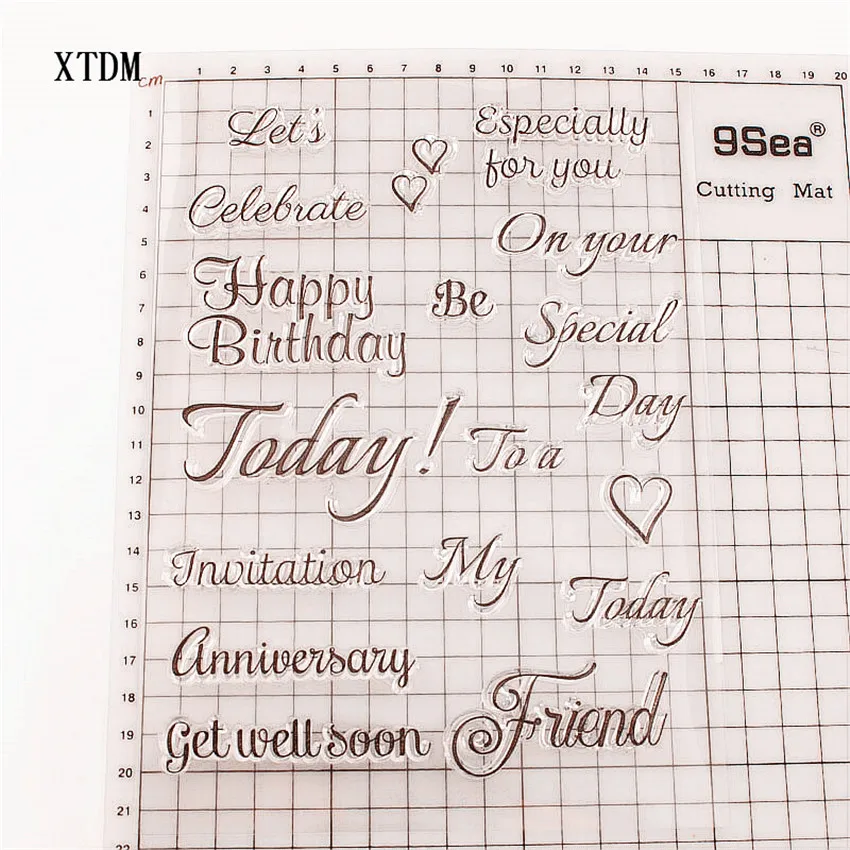 XTDM
cm 1 2 3 4 5 6 7 8 9 10 11 12 13 14 15 16 17 18 19 20
1
2
3
4
5
6
7
8
9
10
11
12
13
14
15
16
17
18
19
20
21
22
9Sea®
Cutting Mat
Let's
Celebrate
Happy
Birthday
Today!
Invitation
Anniversary
Get well soon
Especially
for you
On your
Be
Special
Day
To a
My
Today
Friend